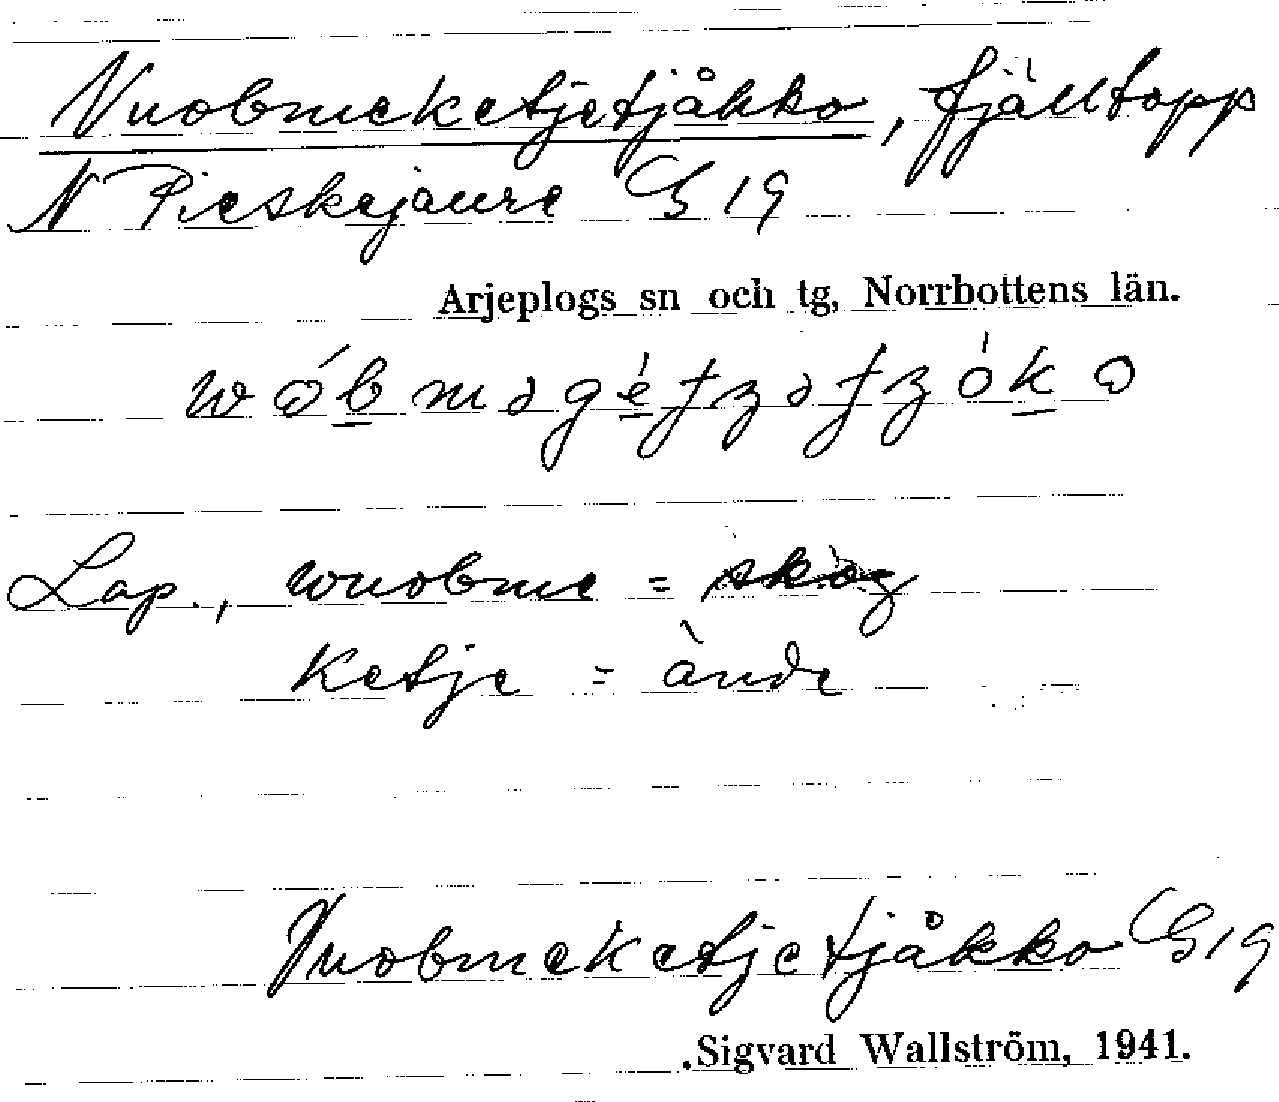 Vuobmeketjetjåkko, fjälltopp
N Pieskejaure G 19
Arjeplogs sn och tg, Norrbottens län.
wób̲məgé̲tzətzókͅo
Lap., wuobme = skog
ketje = ände
Vuobmeketjetjåkko G19
Sigvard Wallström, 1941.